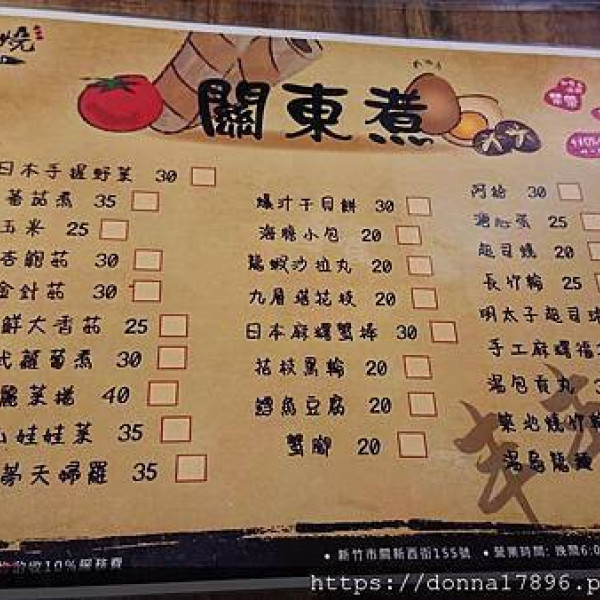 燒
關東煮
日本手握野菜 30
蕃茄煮 35
玉米 25
杏鮑菇 30
金針菇 30
鮮大香菇 25
蘿蔔煮 30
麗菜捲 40
娃娃菜 35
夢天婦羅 35
爆汁干貝餅 30
海膽小包 20
龍蝦沙拉丸 20
九層塔花枝 20
日本麻糬蟹棒 30
花枝黑輪 20
鱈魚豆腐 20
蟹腳 20
阿給 30
溏心蛋 25
起司燒 20
長竹輪 25
明太子起司球
手工麻糬福
湯包貢丸 3
築地燒竹輪
湯烏龍麵
收10%服務費
• 新竹市關新西街155號 • 營業時間: 晚間6:0
https://donna17896.p